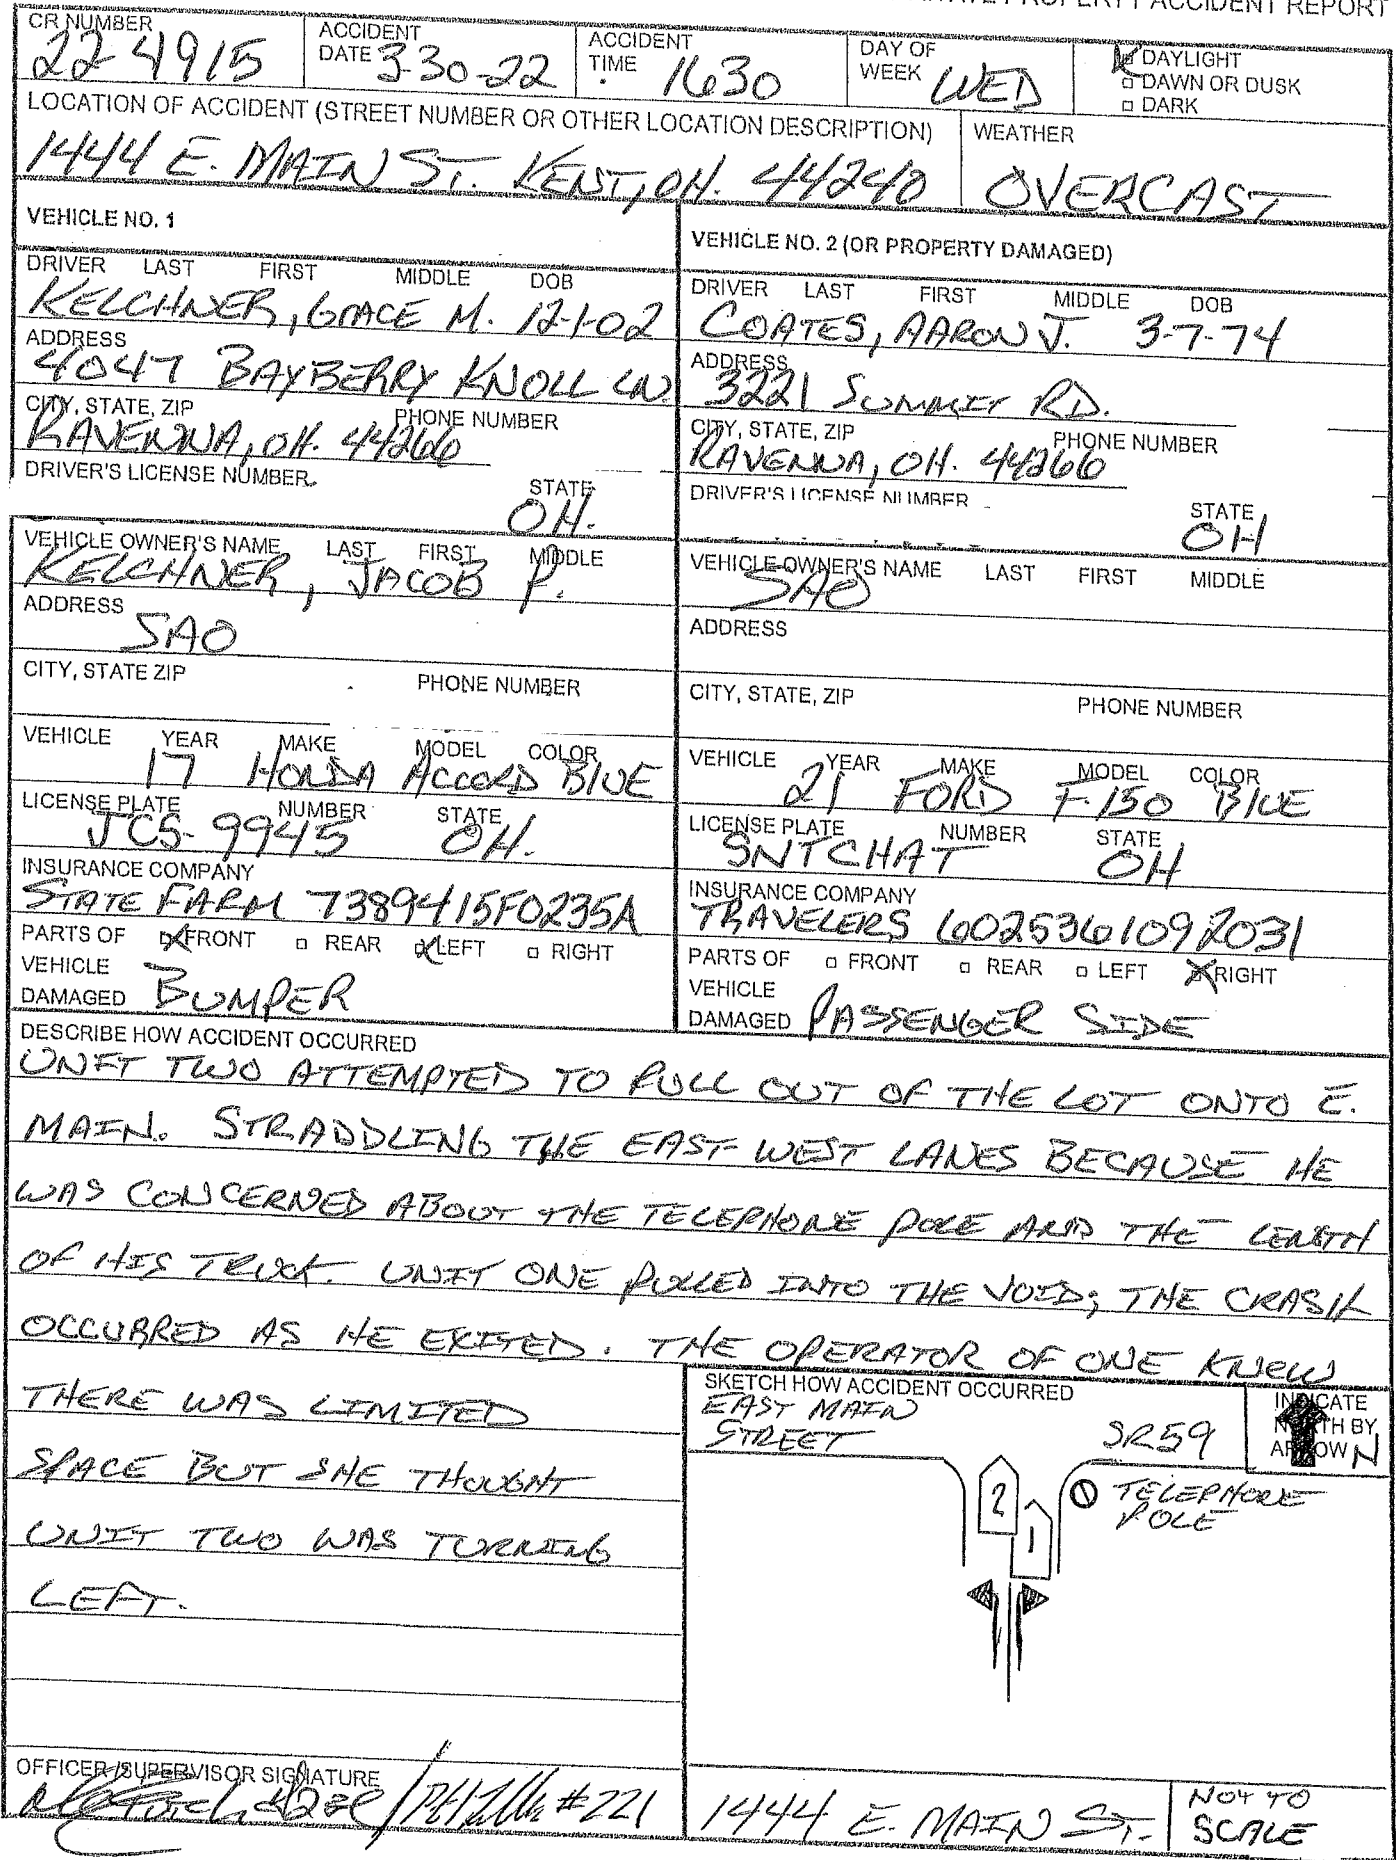 PROPERTY ACCIDENT REPORT
CR NUMBER 22-4915 ACCIDENT DATE 3-30-22 ACCIDENT TIME 1630 DAY OF WEEK WED DAYLIGHT
DAWN OR DUSK
DARK
LOCATION OF ACCIDENT (STREET NUMBER OR OTHER LOCATION DESCRIPTION) WEATHER
1444 E. MAIN ST. KENT, OH. 44240 OVERCAST
VEHICLE NO. 1
DRIVER LAST FIRST MIDDLE DOB
KELCHNER, GRACE M. 12-1-02
ADDRESS
4047 BAYBERRY KNOLL LN.
CITY, STATE, ZIP PHONE NUMBER
RAVENNA, OH. 44266
DRIVER'S LICENSE NUMBER STATE
OH.
VEHICLE OWNER'S NAME LAST FIRST MIDDLE
KELCHNER, JACOB P.
ADDRESS
SAO
CITY, STATE ZIP PHONE NUMBER
VEHICLE YEAR MAKE MODEL COLOR
17 HONDA ACCORD BLUE
LICENSE PLATE NUMBER STATE
JCS-9945 OH.
INSURANCE COMPANY
STATE FARM 7389415F0235A
PARTS OF FRONT REAR LEFT RIGHT
VEHICLE
DAMAGED BUMPER
VEHICLE NO. 2 (OR PROPERTY DAMAGED)
DRIVER LAST FIRST MIDDLE DOB
COATES, AARON J. 3-7-74
ADDRESS
3221 SUMMIT RD.
CITY, STATE, ZIP PHONE NUMBER
RAVENNA, OH. 44266
DRIVER'S LICENSE NUMBER STATE
OH
VEHICLE OWNER'S NAME LAST FIRST MIDDLE
SAO
ADDRESS
CITY, STATE, ZIP PHONE NUMBER
VEHICLE YEAR MAKE MODEL COLOR
21 FORD F-150 BLUE
LICENSE PLATE NUMBER STATE
SNTCHAT OH
INSURANCE COMPANY
TRAVELERS 6025361092031
PARTS OF FRONT REAR LEFT RIGHT
VEHICLE
DAMAGED PASSENGER SIDE
DESCRIBE HOW ACCIDENT OCCURRED
UNIT TWO ATTEMPTED TO PULL OUT OF THE LOT ONTO E.
MAIN. STRADDLING THE EAST-WEST LANES BECAUSE HE
WAS CONCERNED ABOUT THE TELEPHONE POLE AND THE LENGTH
OF HIS TRUCK. UNIT ONE PULLED INTO THE VOID; THE CRASH
OCCURRED AS HE EXITED. THE OPERATOR OF ONE KNEW
THERE WAS LIMITED
SPACE BUT SHE THOUGHT
UNIT TWO WAS TURNING
LEFT.
SKETCH HOW ACCIDENT OCCURRED
EAST MAIN
STREET SR59
INDICATE
NORTH BY
ARROW N
2
1
TELEPHONE
POLE
OFFICER/SUPERVISOR SIGNATURE
#221
1444 E. MAIN ST.
NOT TO
SCALE